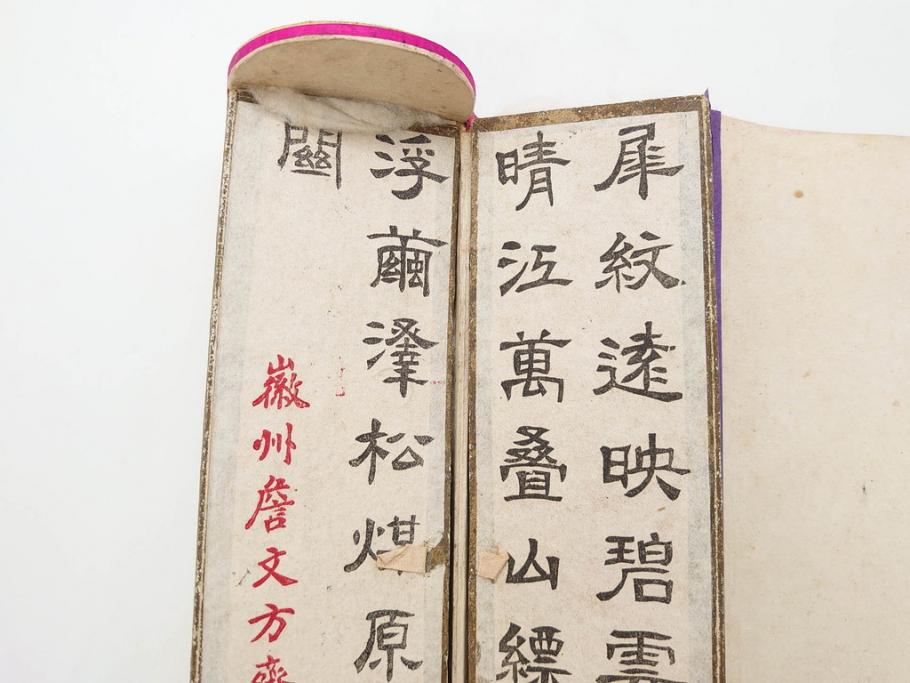 犀紋遠映碧雲
晴江萬叠山縹
浮繭澤松煤原
闗
徽州詹文方齋